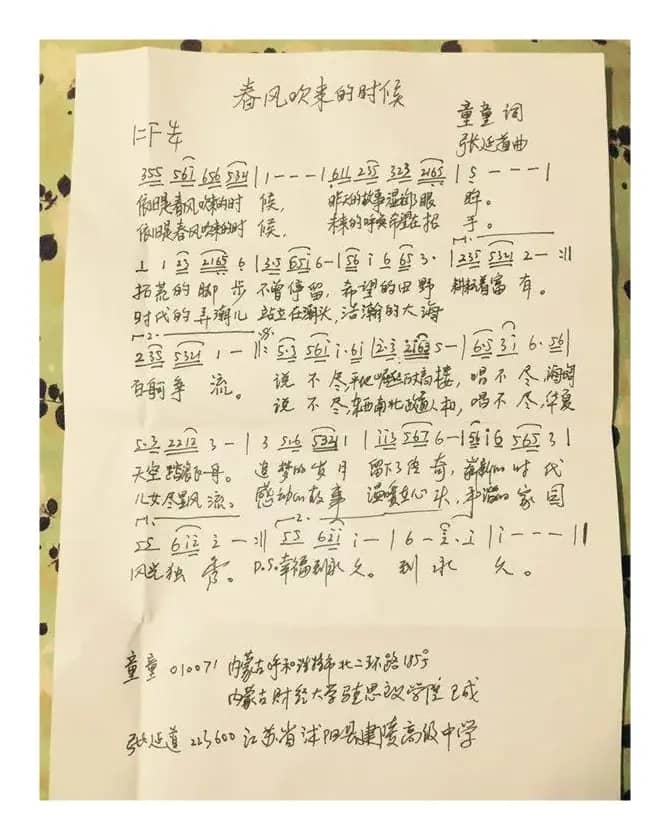 春风吹来的时候
童童 词
1=F 4/4
张延道曲
355 561̇ 656 5321 | 1 - - - | 611 235 323 2165 | 5 - - - |
依旧是春风吹来的时 候, 昨天的故事湿润 眼 眸。
依旧是春风吹来的时 候, 未来的呼唤希望在招 手。
1 1 23 2165 6 | 3·5 651̇ 6 - | 56 1̇ 6 65 3· | 235 5321 2 - :||
拓荒的脚 步 不曾停留, 希望的田野 耕耘着富 有。
时代的弄潮儿 站立在潮头, 浩瀚的大海
235 5321 1 - ||: 5·3 561̇ 1̇·61̇ | 2·3 2163 5 - | 6·5 31̇ 6·56 |
百舸争 流。 说 不 尽, 平地崛起的高楼, 唱 不 尽,
说 不 尽, 东西南北政通人和, 唱 不 尽, 华夏
5·3 2212 3 - | 3 516 5321 | 1̇1̇3 567 6 - | 56 1̇6 565 3 |
天空 追梦的岁月 留下了传 奇, 崭新的时 代
儿女尽显风 流。 感动的故事 温暖在心 头, 幸福的家 园
55 61̇2̇ 2̇ - :|| 55 621̇ 1̇ - | 6 - 2̇·1̇ | 1̇ - - - ||
风光独 秀。 D.S. 幸福到永 久。 到 永 久。
童童 010071 内蒙古呼和浩特市北二环路185号
内蒙古财经大学马克思主义学院
张延道 223600 江苏省沭阳县建陵高级中学